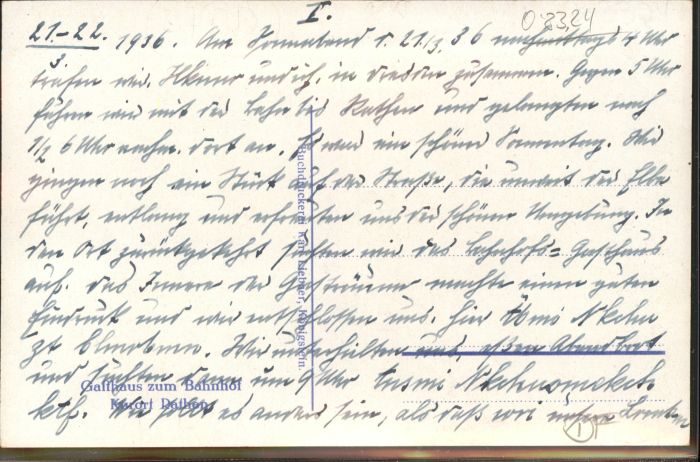 I.
O 8324
21.-22. 1936. Am Sonnabend d. 21/3. 36 nachmittags 4 Uhr
3.
trafen wir, und ich, in Dresden zusammen. Gegen 5 Uhr
fuhren wir mit der Bahn bis Rathen und gelangten nach
1/2 6 Uhr nachm. dort an. Es war ein schöner Sonnentag. Wir
gingen noch ein Stück auf der Straße, die unweit der Elbe
führt, entlang und erfreuten uns der schönen Umgebung. In
den Ort zurückgekehrt suchten wir das Bahnhofs=Gasthaus
auf. Das Innere der Gasträume machte einen guten
Eindruck und wir entschlossen uns, hier
zu Wir unterhielten uns, aßen Abendbrot
und suchten dann um 9 Uhr
Wie sollte es anders sein, als daß wir unsern
Buchdruckerei Karl Liebner, Königstein.
Gasthaus zum Bahnhof
Kurort Rathen
1